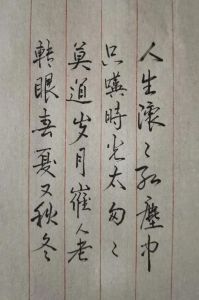 人生滚〻红塵中
只嘆時光太匆〻
莫道岁月崔人老
転眼春夏又秋冬